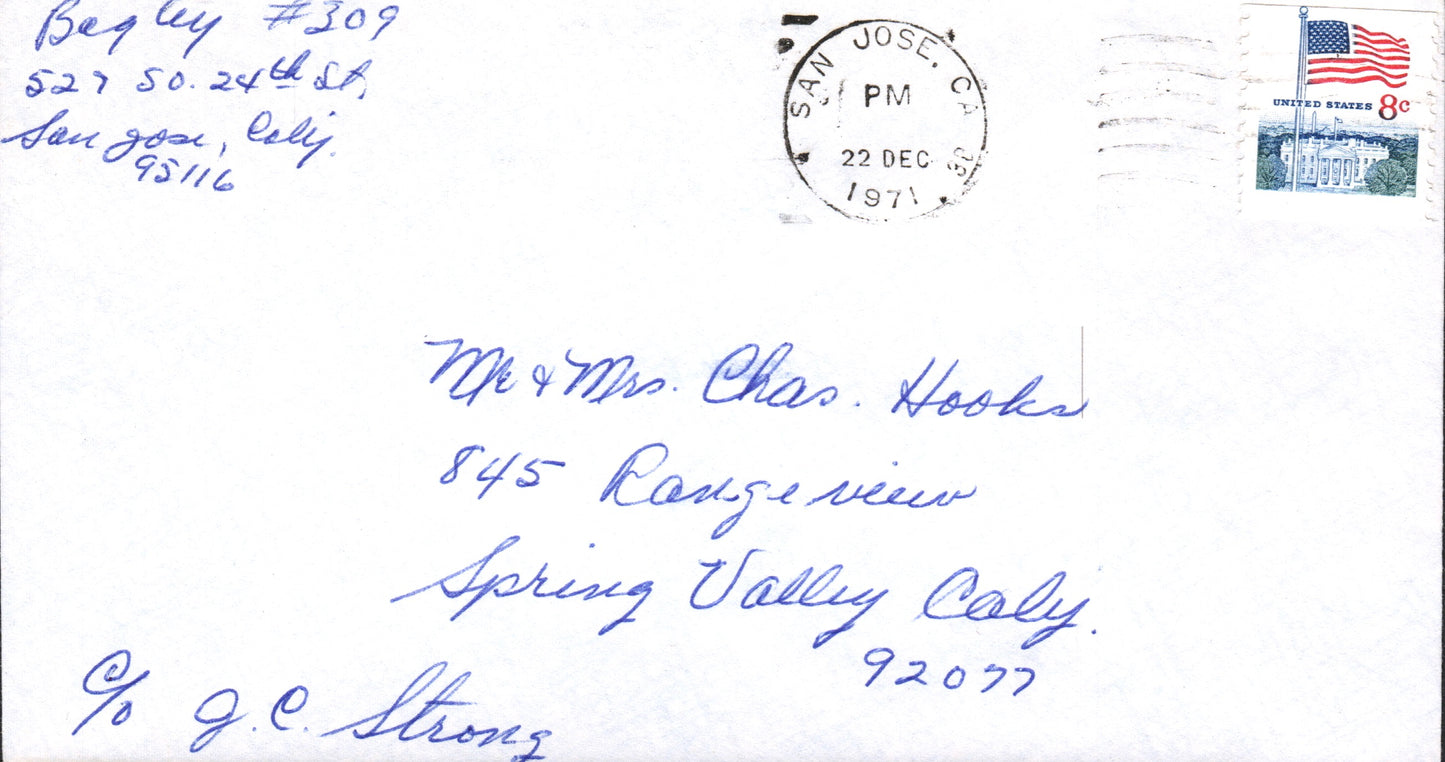 Bagley #309
527 So. 24th St,
San Jose, Calif.
95116
SAN JOSE, CA
PM
22 DEC
1971
UNITED STATES 8c
Mr & Mrs. Chas. Hooks
845 Rangeview
Spring Valley Calif.
92077
c/o J.C. Strong